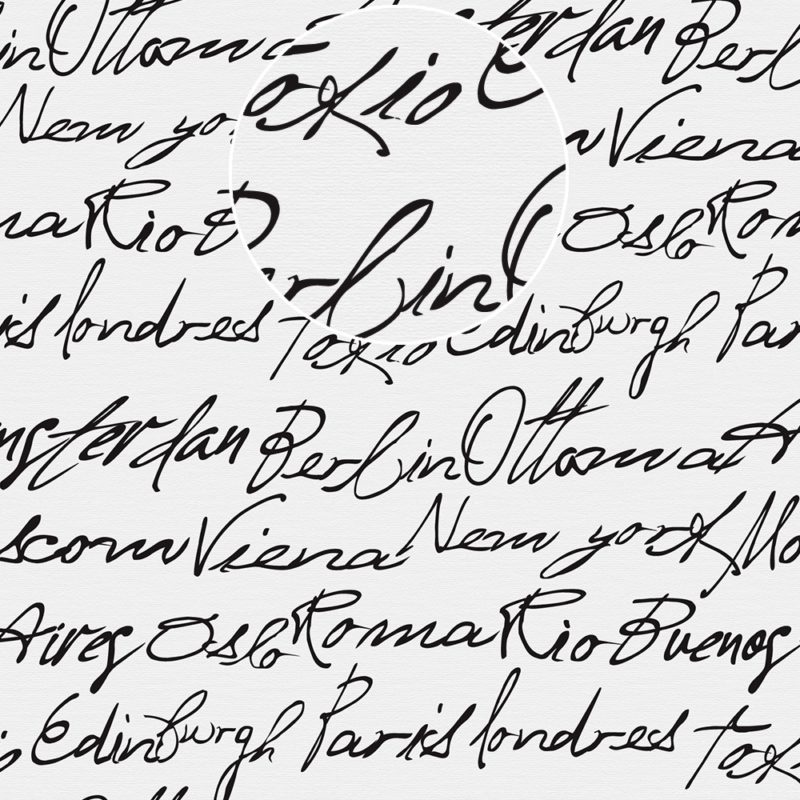 in Ottowa terdan Berl
okio
New yo Viena
ma Rio B Oslo Rom
erlin
is londres Tokio Edinburgh Par
msterdan Berlin Ottowa
scow Viena New york Mo
Aires Oslo Roma Rio Buenos
Edinburgh Paris londres Tok